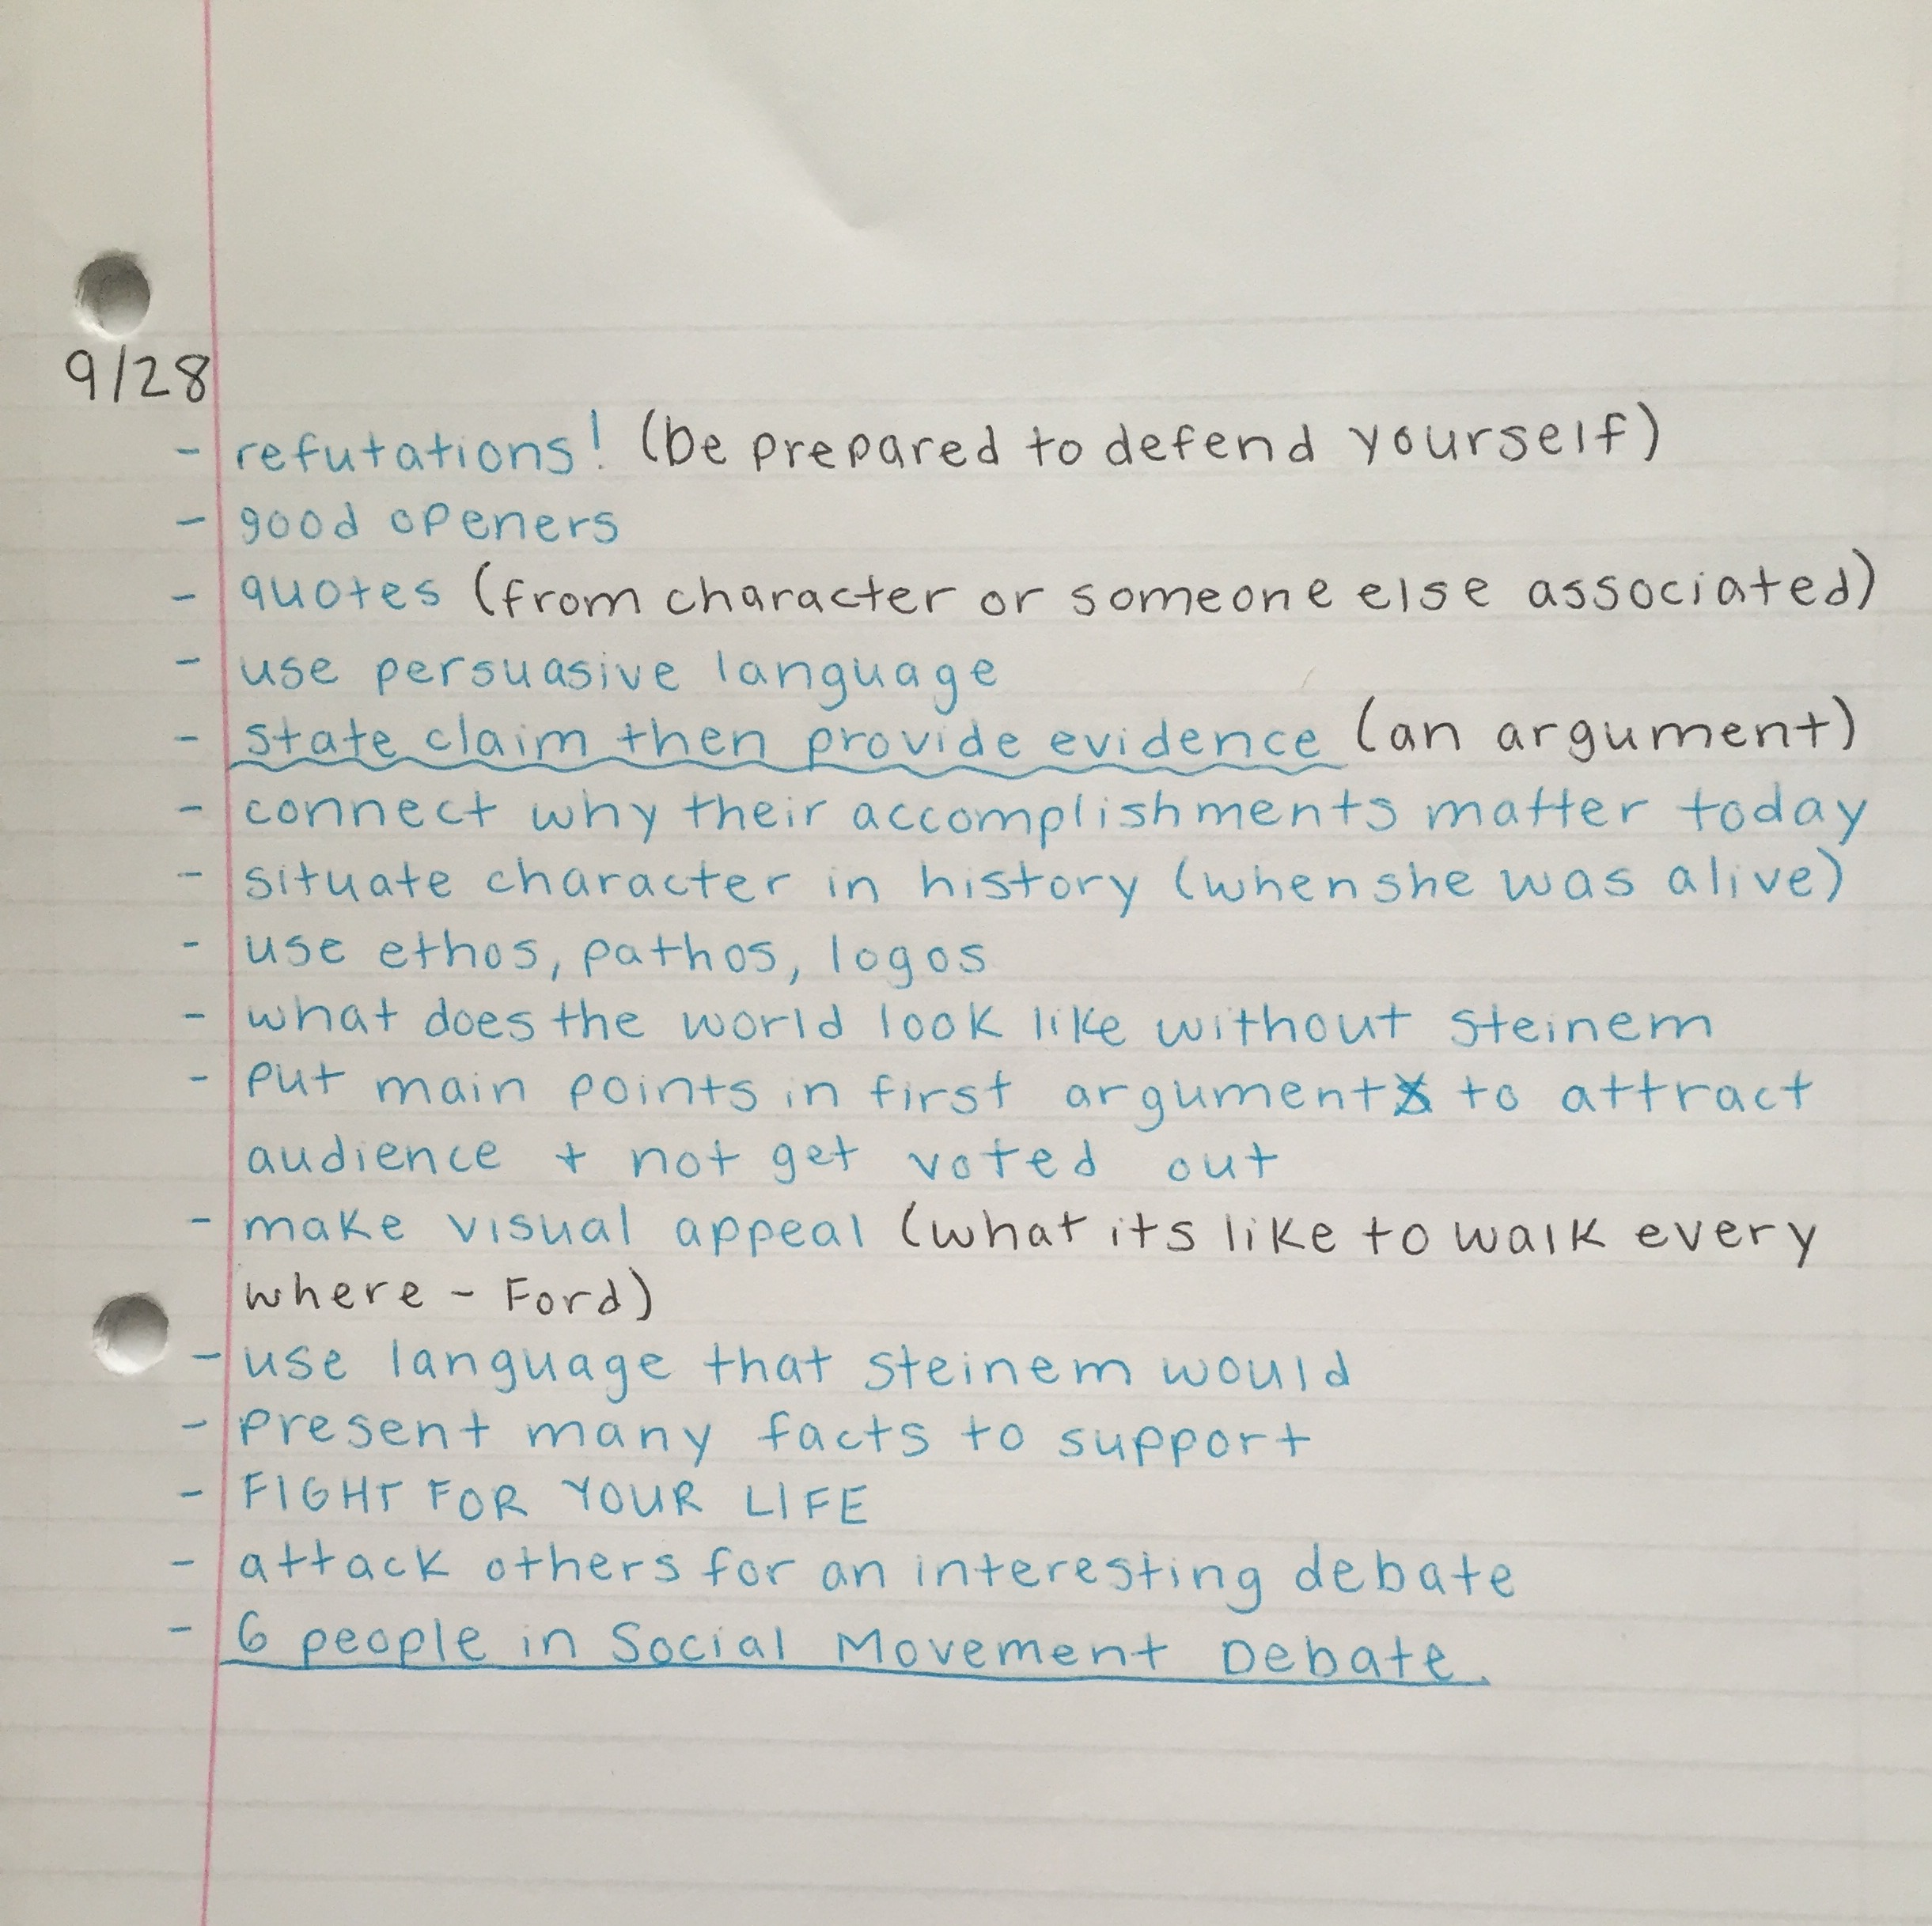 9/28
- refutations! (be prepared to defend yourself)
- good openers
- quotes (from character or someone else associated)
- use persuasive language
- state claim then provide evidence (an argument)
- connect why their accomplishments matter today
- situate character in history (when she was alive)
- use ethos, pathos, logos
- what does the world look like without steinem
- put main points in first argument to attract
audience + not get voted out
- make visual appeal (what its like to walk every
where - Ford)
- use language that steinem would
- present many facts to support
- FIGHT FOR YOUR LIFE
- attack others for an interesting debate
- 6 people in Social Movement Debate.